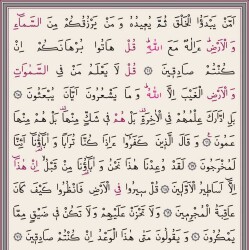 أَمَّنْ يَبْدَؤُا الْخَلْقَ ثُمَّ يُعِيدُهُ وَ مَنْ يَرْزُقُكُمْ مِنَ السَّمَاءِ
وَ الْأَرْضِ أَءِلَٰهٌ مَعَ اللَّهِ قُلْ هَاتُوا بُرْهَانَكُمْ إِنْ
كُنْتُمْ صَادِقِينَ قُلْ لَا يَعْلَمُ مَنْ فِي السَّمَٰوَاتِ
وَ الْأَرْضِ الْغَيْبَ إِلَّا اللَّهُ وَ مَا يَشْعُرُونَ أَيَّانَ يُبْعَثُونَ
بَلِ ادَّارَكَ عِلْمُهُمْ فِي الْآخِرَةِ بَلْ هُمْ فِي شَكٍّ مِنْهَا بَلْ هُمْ مِنْهَا
عَمُونَ وَ قَالَ الَّذِينَ كَفَرُوا أَإِذَا كُنَّا تُرَابًا وَ آبَاؤُنَا أَئِنَّا
لَمُخْرَجُونَ لَقَدْ وُعِدْنَا هَٰذَا نَحْنُ وَ آبَاؤُنَا مِنْ قَبْلُ إِنْ هَٰذَا
إِلَّا أَسَاطِيرُ الْأَوَّلِينَ قُلْ سِيرُوا فِي الْأَرْضِ فَانْظُرُوا كَيْفَ كَانَ
عَاقِبَةُ الْمُجْرِمِينَ وَ لَا تَحْزَنْ عَلَيْهِمْ وَ لَا تَكُنْ فِي ضَيْقٍ مِمَّا
يَمْكُرُونَ وَ يَقُولُونَ مَتَىٰ هَٰذَا الْوَعْدُ إِنْ كُنْتُمْ صَادِقِينَ